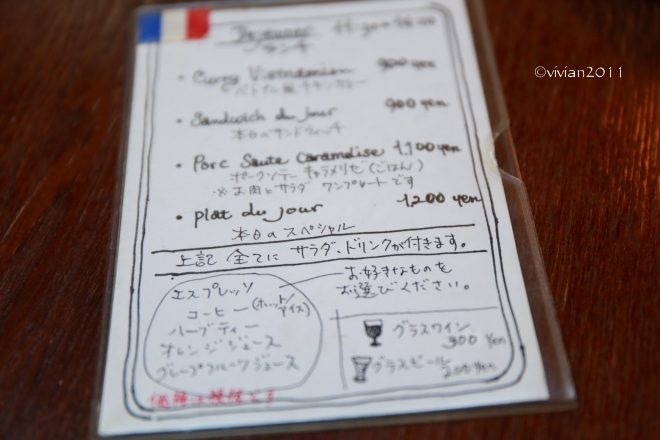 ©vivian2011
Dejeuner 11:30~15:00
ランチ
• Curry Vietnamien 900 yen
ベトナム風チキンカレー
• Sandwich du jour 900 yen
本日のサンドウィッチ
• Porc Saute Caramelise 1,100 yen
ポークソテー キャラメリゼ (ごはん)
※お肉とサラダ ワンプレートです
• plat du jour 1,200 yen
本日のスペシャル
上記 全てに サラダ、ドリンクが付きます。
エスプレッソ
コーヒー(ホット/アイス)
ハーブティー
オレンジジュース
グレープフルーツジュース
お好きなものを
お選びください。
グラスワイン
300 yen
グラスビール
200 yen
価格は税抜です